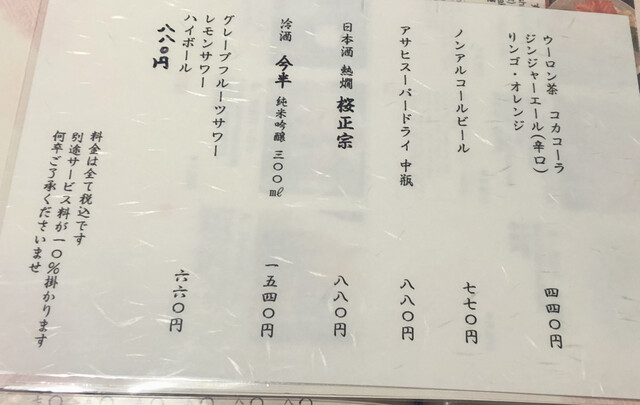 ウーロン茶　コカコーラ
ジンジャーエール(辛口)
リンゴ・オレンジ
四四〇円
ノンアルコールビール
七七〇円
アサヒスーパードライ 中瓶
八八〇円
日本酒 熱燗 桜正宗
八八〇円
冷酒 今半 純米吟醸 三〇〇㎖
一五四〇円
グレープフルーツサワー
レモンサワー
ハイボール
六六〇円
八八〇円
料金は全て税込です
別途サービス料が一〇%掛かります
何卒ご了承くださいませ